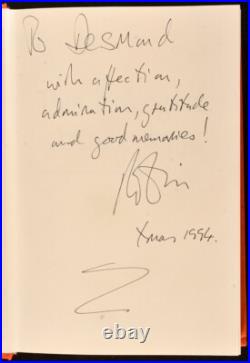 To Desmond
with affection,
admiration, gratitude
and good memories!
Robin
Xmas 1994.